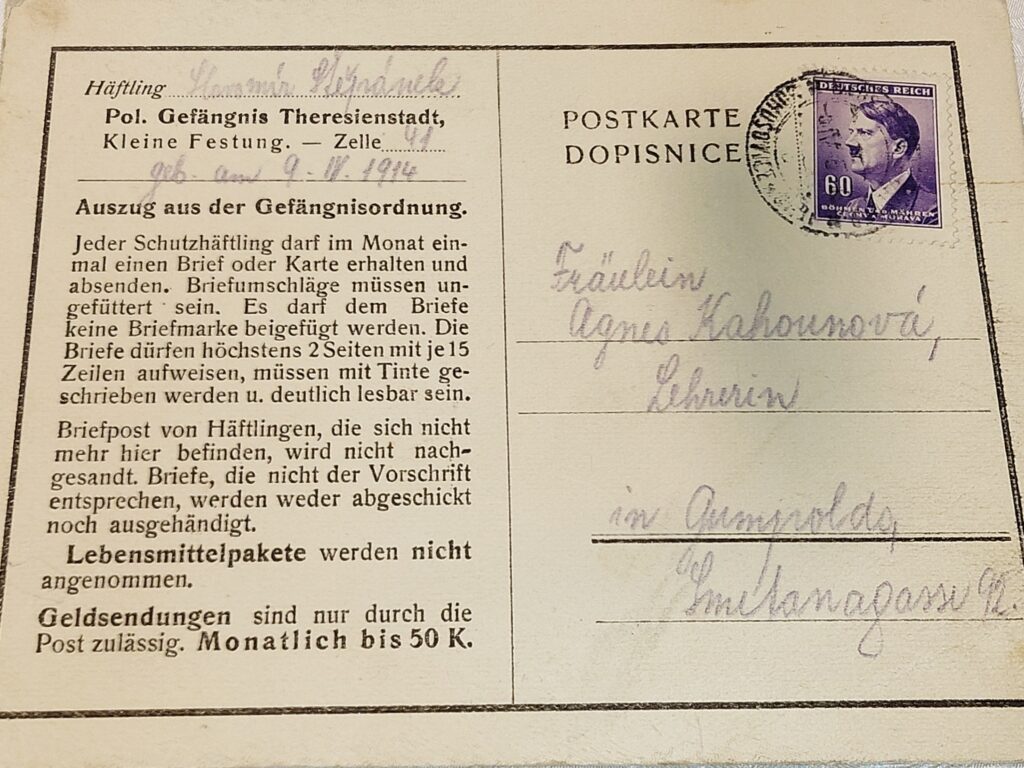 Häftling Štěpánek
Pol. Gefängnis Theresienstadt,
Kleine Festung. — Zelle 41
geb. am 9. IV. 1914
Auszug aus der Gefängnisordnung.
Jeder Schutzhäftling darf im Monat ein-
mal einen Brief oder Karte erhalten und
absenden. Briefumschläge müssen un-
gefüttert sein. Es darf dem Briefe
keine Briefmarke beigefügt werden. Die
Briefe dürfen höchstens 2 Seiten mit je 15
Zeilen aufweisen, müssen mit Tinte ge-
schrieben werden u. deutlich lesbar sein.
Briefpost von Häftlingen, die sich nicht
mehr hier befinden, wird nicht nach-
gesandt. Briefe, die nicht der Vorschrift
entsprechen, werden weder abgeschickt
noch ausgehändigt.
Lebensmittelpakete werden nicht
angenommen.
Geldsendungen sind nur durch die
Post zulässig. Monatlich bis 50 K.
POSTKARTE
DOPISNICE
DEUTSCHES REICH
60
BÖHMEN UND MÄHREN
ČECHY A MORAVA
Fräulein
Agnes Kahounová,
Lehrerin
in Gumpolds,
Smetanagasse 92.